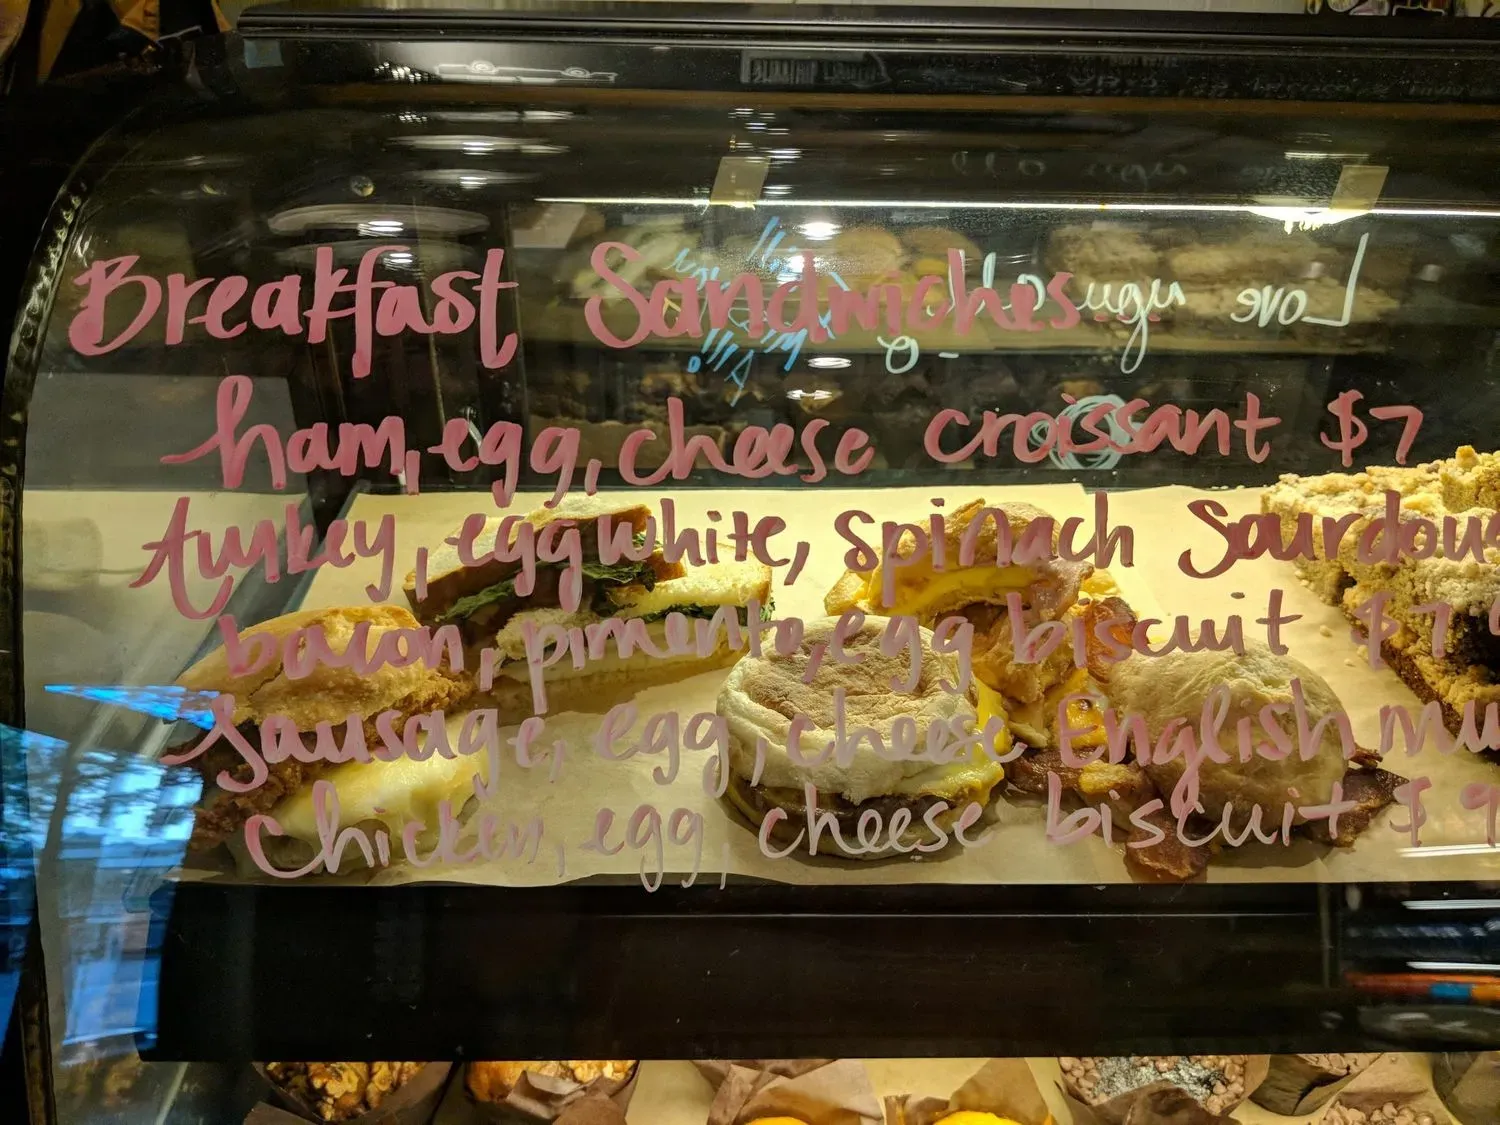 Breakfast Sandwiches
ham, egg, cheese croissant $7
turkey, egg white, spinach Sourdoug
bacon, pimento, egg biscuit $7
Sausage, egg, cheese English mu
Chicken, egg, cheese biscuit $9
Love